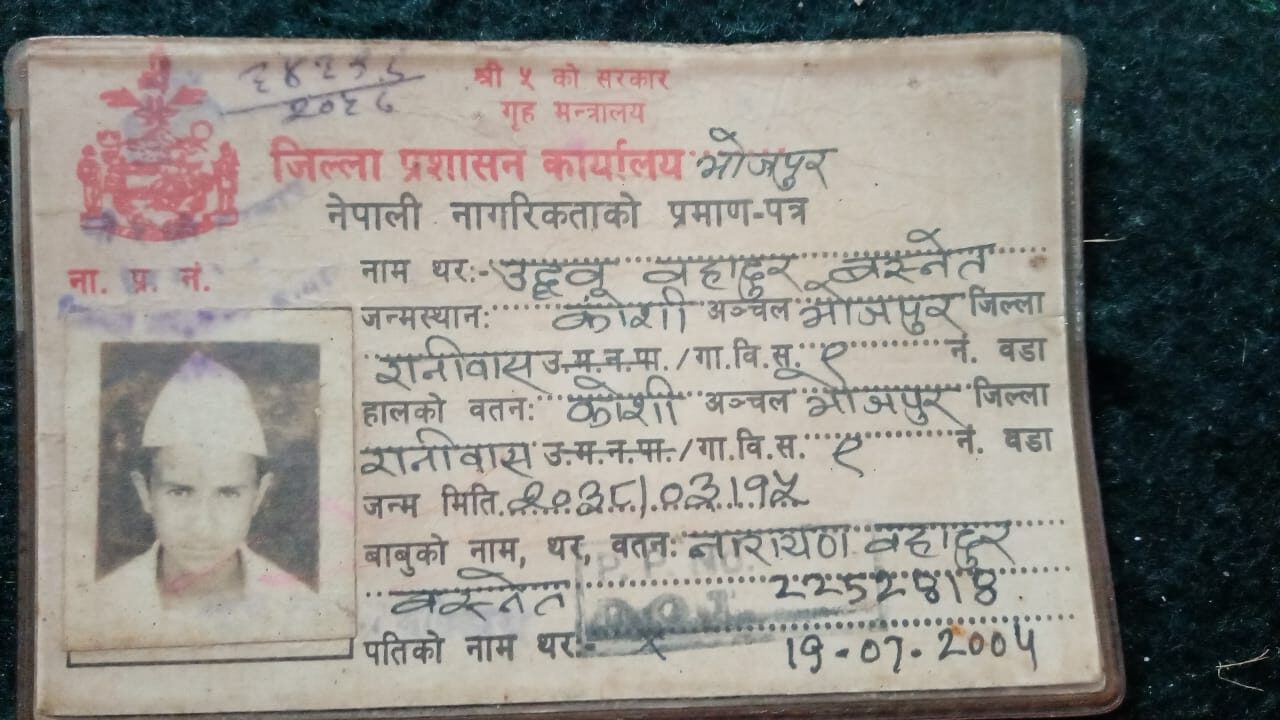 श्री ५ को सरकार
गृह मन्त्रालय
जिल्ला प्रशासन कार्यालय भोजपुर
नेपाली नागरिकताको प्रमाण-पत्र
ना. प्र. नं.
नाम थर:- उद्धव बहादुर बस्नेत
जन्मस्थान: कोशी अञ्चल भोजपुर जिल्ला
रानीवास उ.म.न.पा./गा.वि.स. ९ नं. वडा
हालको वतन: कोशी अञ्चल भोजपुर जिल्ला
रानीवास उ.म.न.पा./गा.वि.स. ९ नं. वडा
जन्म मिति. २०३८।०३।१५
बाबुको नाम, थर, वतन: नारायण बहादुर
बस्नेत P.P.NO. 2252818
पतिको नाम थर:- x 19-07-2004